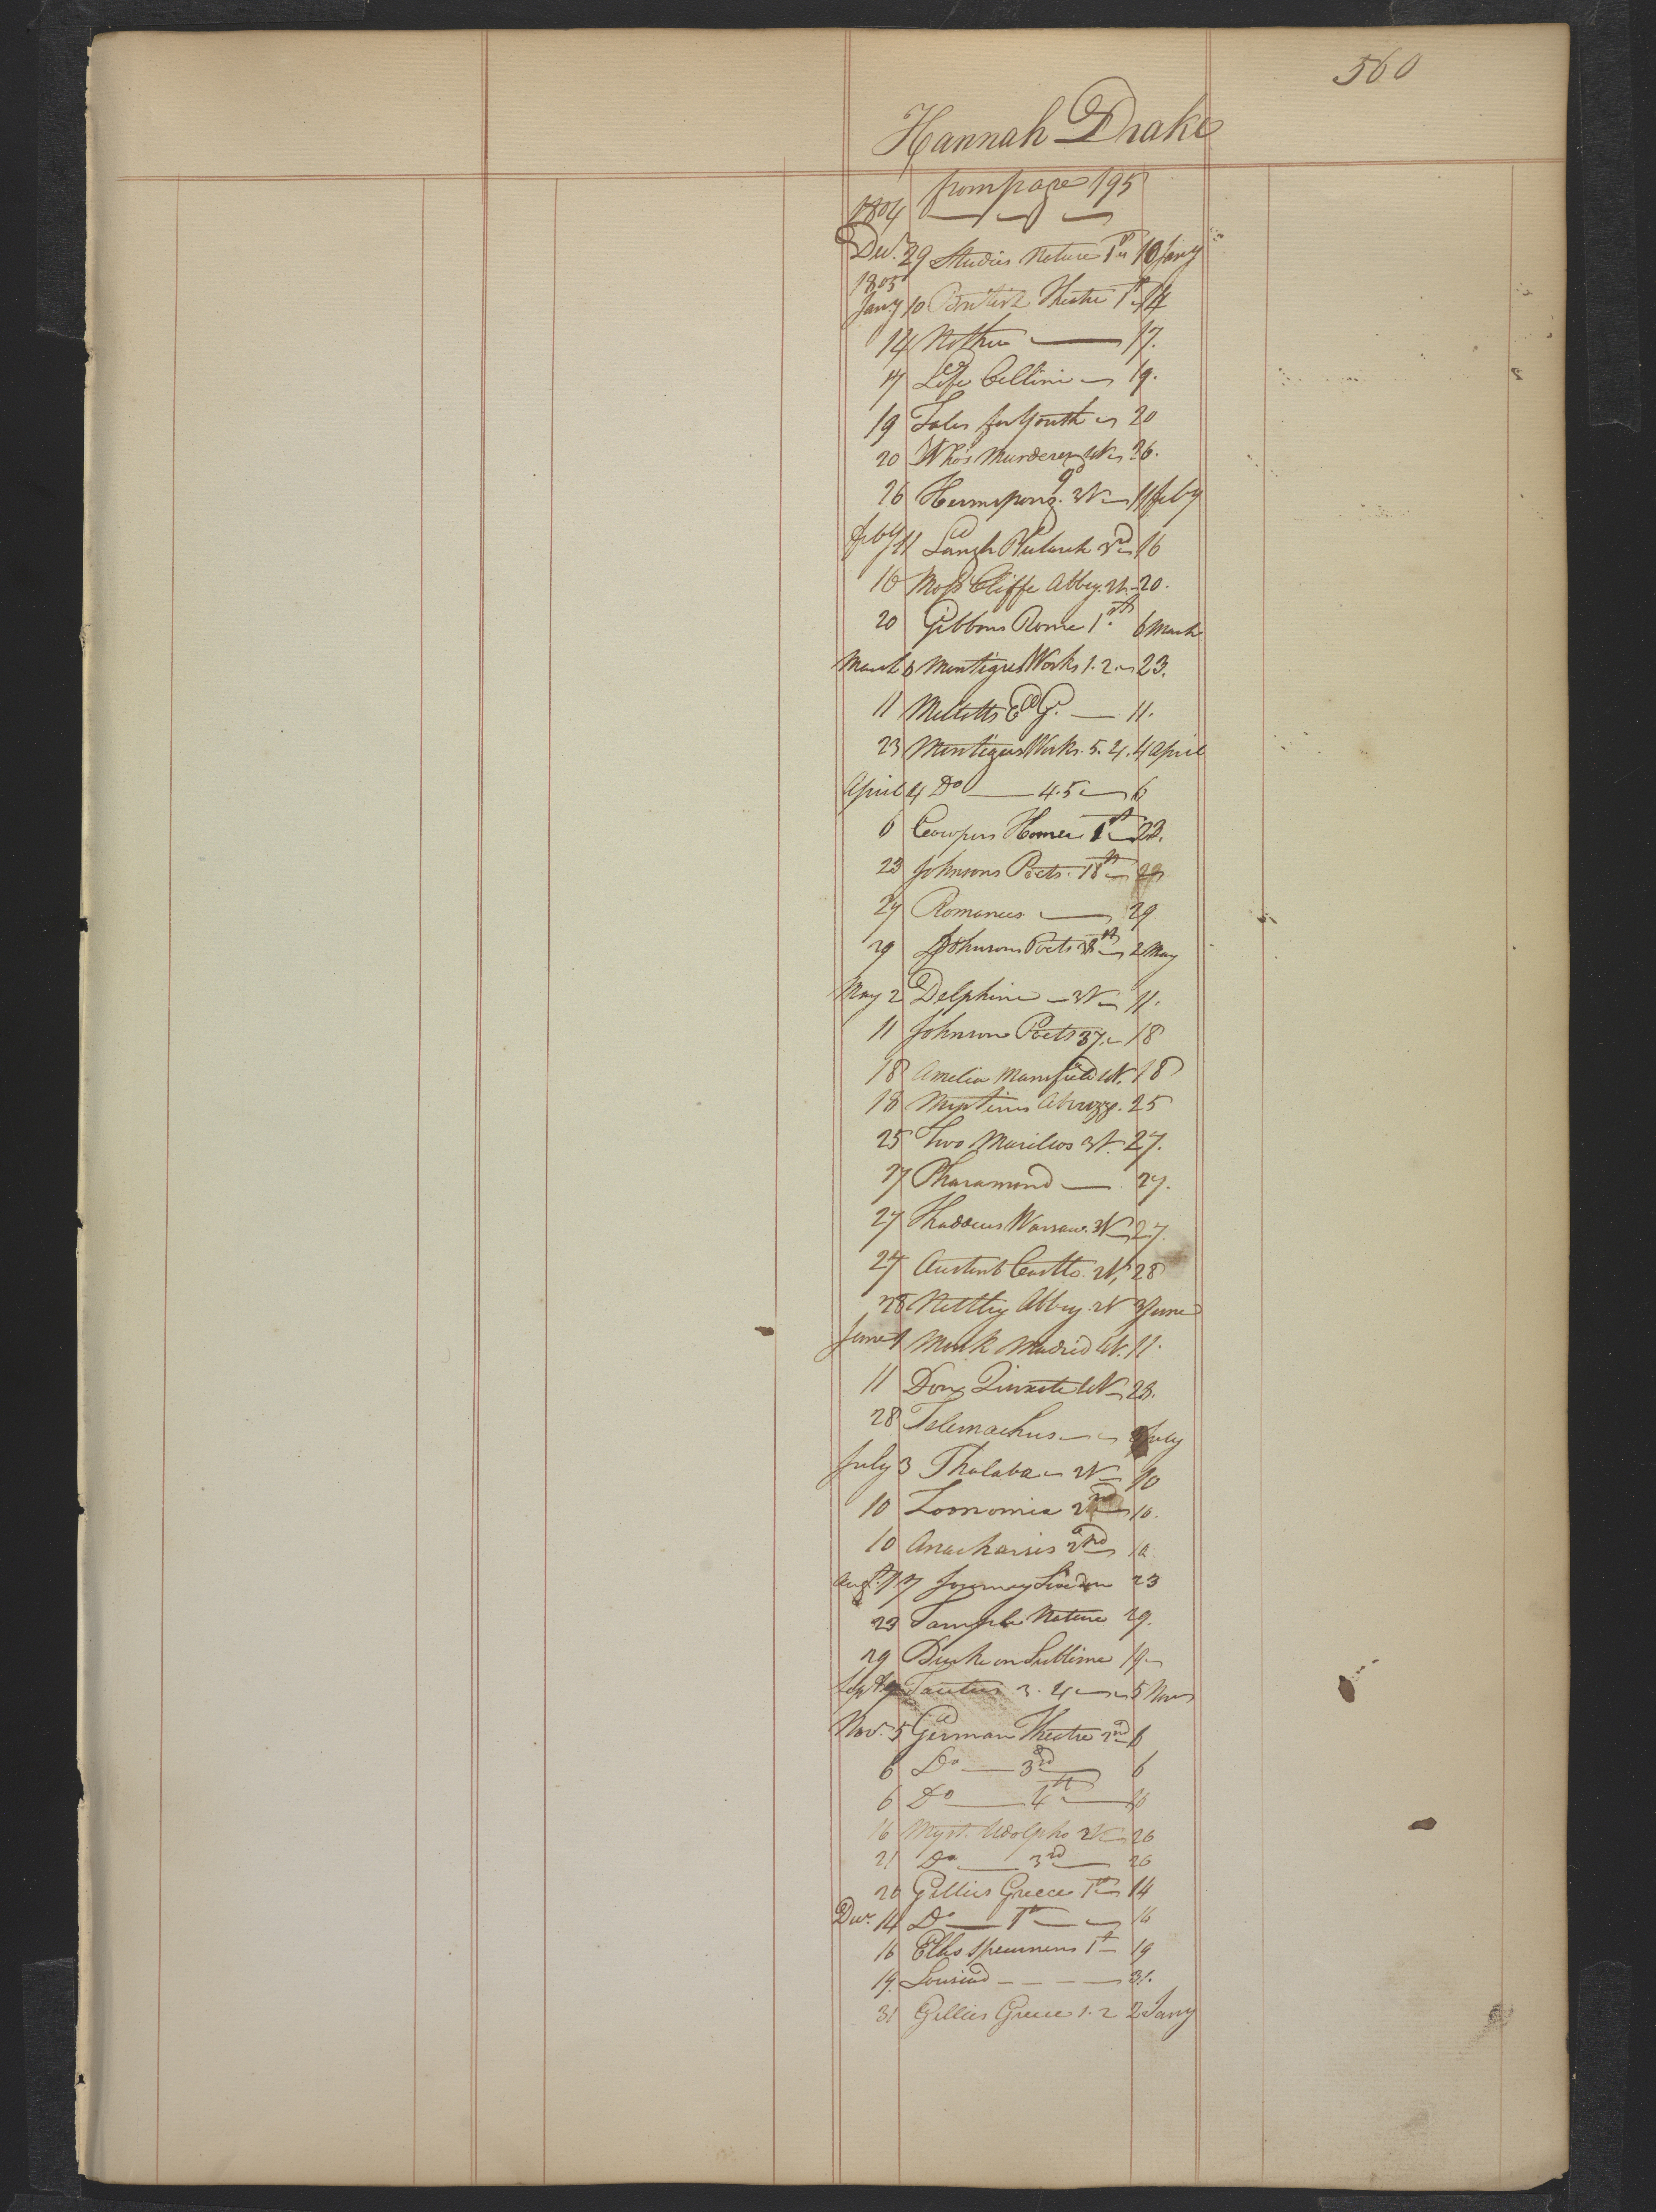 560
Hannah Drake
from page 195
1804
Decr. 29 Studies Nature 1st 10 Jany
1805
Jany 10 British Theatre 1st 14
14 Nothin 17.
17 Life Cellini 19.
19 Tales for Youth 20
20 Who's Murderer 4V 26.
26 Hermsprong. 3V 11 feby
feby 11 Langh Plutarch 3rd 16
16 Moss Cliffe Abbey. 2V 20.
20 Gibbons Rome 1st. 6 March
March 6 Montigues Works 1. 2 23.
11 E G. 11.
23 Montigues Works. 3. 4. 4 April
April 4 Do 4.5 6
6 Cowpers Homer 1st 23.
23 Johnsons Poets. 18th
27 Romances. 29
29 Johnsons Poets 38th 2 May
May 2 Delphine 3V 11.
11 Johnsons Poets 37. 18
18 Amelia Mansfield 4V. 18
18 Mysterious Abruzzo. 25
25 Two Marilios 3V. 27.
27 Pharamond 27.
27 Thaddeus Warsaw. 3V 27.
27 Austenb Castle. 2V, 28
28 Nettley Abbey. 2V 3 June
June Monk Madrid 4V. 11.
11 Don Quixote 4V 23.
28 Telemachus July
July 3 Thalaba 2V 10
10 Zoonomia 2nd 10.
10 Anacharsis 2nd 10.
Augt. 17 Journey London 23
23 Temple Nature 29.
29 Burke on Sublime 19
Sept Tacitus 3. 4 5 Nov
Nov. 5 German Theatre 2nd 6
6 Do 3rd 6
6 Do 4th 16
16 Myst. Udolpho 2V 26
21 Do 3rd 26
26 Gillies Greece 1st 14
Decr. 14 Do 1st 16
16 Ellis Specimens 1st 19
19. Lousiad 31.
31 Gillies Greece 1. 2 2 Jany